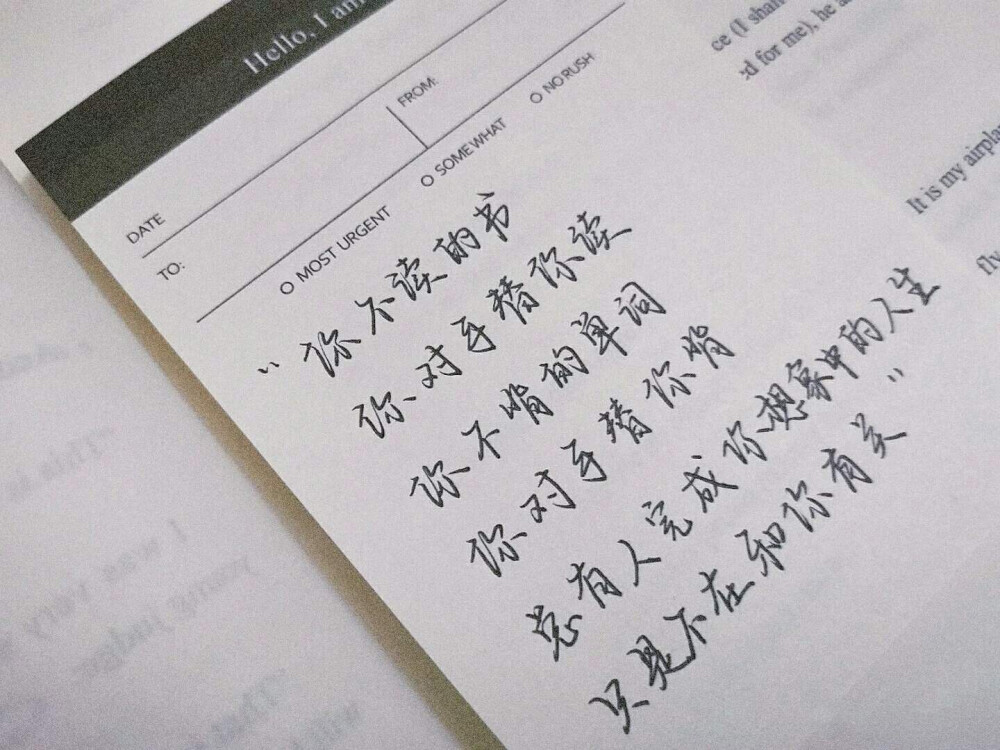 Hello, I am
DATE
FROM:
TO:
O MOST URGENT O SOMEWHAT O NO RUSH
“你不读的书
你对手替你读
你不背的单词
你对手替你背
总有人完成你想象中的人生
只是不在和你有关”
ce (I shall
ed for me), he
It is my airpla
fly